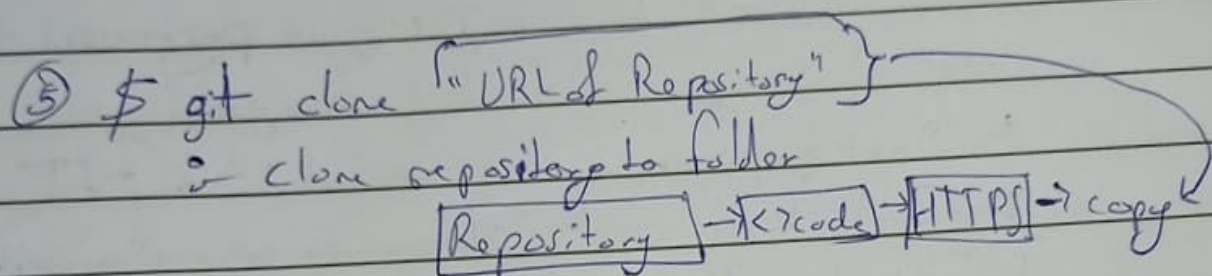 ⑤ $ git clone "URL of Repository"
:- clone repository to folder
Repository → <>code → HTTPS → copy